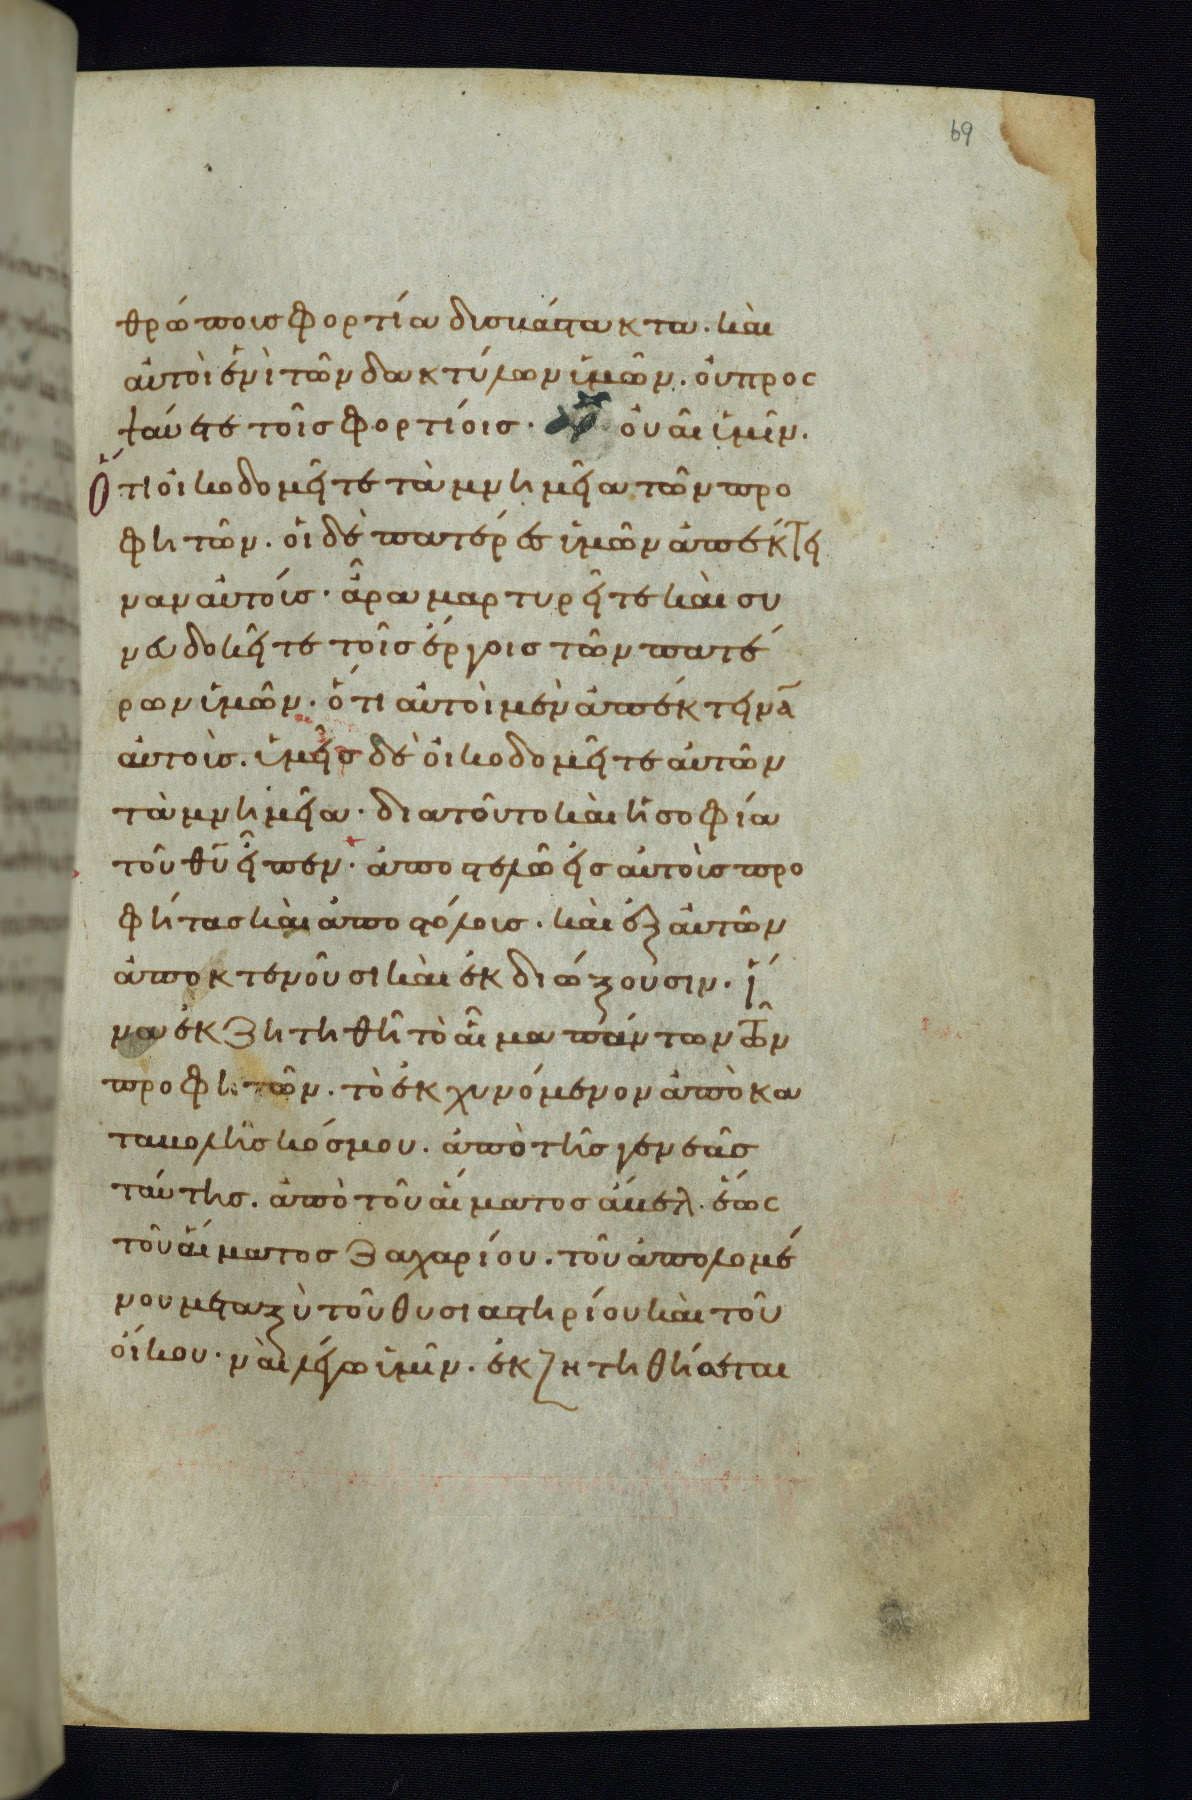 69
θρώποις φορτία δισβάστακτα. καὶ
αὐτοὶ ἑνὶ τῶν δακτύλων ἡμῶν. οὐ προσ
ψαύετε τοῖς φορτίοις. οὐαὶ ἡμῖν.
ὅτι οἰκοδομεῖτε τὰ μνημεῖα τῶν προ
φητῶν. οἱ δὲ πατέρες ἡμῶν ἀπέκτει
ναν αὐτούς. ἄρα μαρτυρεῖτε καὶ συ
νευδοκεῖτε τοῖς ἔργοις τῶν πατέ
ρων ἡμῶν. ὅτι αὐτοὶ μὲν ἀπέκτειναν
αὐτοὺς. ἡμεῖς δὲ οἰκοδομεῖτε αὐτῶν
τὰ μνημεῖα. διατοῦτο καὶ ἡ σοφία
τοῦ θῦ εἶπεν. ἀποστελῶ εἰς αὐτοὺς προ
φήτας καὶ ἀποστόλους. καὶ ἐξ αὐτῶν
ἀποκτενοῦσι καὶ ἐκδιώξουσιν. ἵ
να ἐκζητηθῆ τὸ αἷμα πάντων τῶν
προφητῶν. τὸ ἐκχυνόμενον ἀπὸ κα
ταβολῆς κόσμου. ἀπὸ τῆς γενεᾶς
ταύτης. ἀπὸ τοῦ αἵματος ἄβελ. ἕως
τοῦ αἵματος Ζαχαρίου. τοῦ ἀπολομέ
νου μεταξὺ τοῦ θυσιαστηρίου καὶ τοῦ
οἴκου. ναὶ λέγω ὑμῖν. ἐκζητηθήσεται